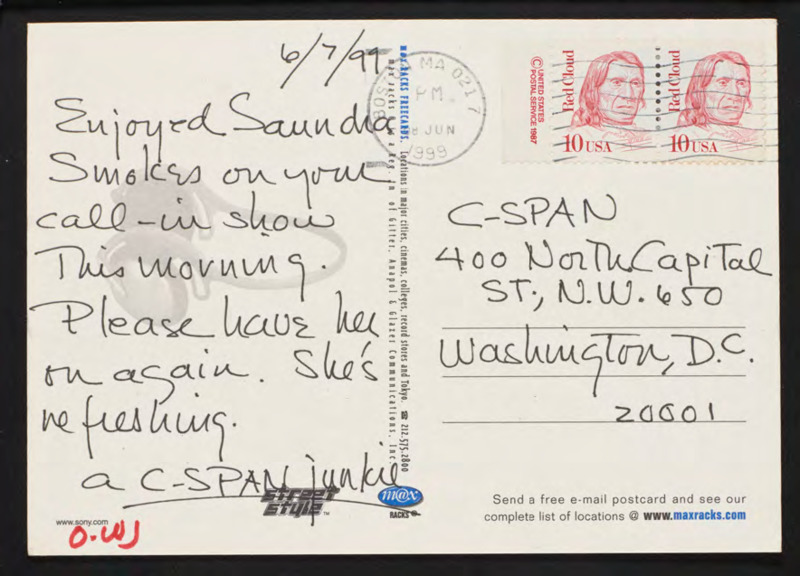 6/7/99
Enjoyed Saundra
Smokes on your
call-in show
This morning.
Please have her
on again. She's
refreshing.
a C-SPAN junkie
street
style™
www.sony.com
O-WJ
max racks POSTCARDS. Locations in major cities, cinemas, colleges, record stores and Tokyo. ☎ 212.575.2800
max racks is a Reg. TM of Gitter, Anapol & Glazer Communications, Inc.
m@x
RACKS
MA 0217
PM
8 JUN
1999
© UNITED STATES
POSTAL SERVICE 1987
Red Cloud
10 USA
Red Cloud
10 USA
C-SPAN
400 North Capital
ST., N.W. 650
Washington, D.C.
20001
Send a free e-mail postcard and see our
complete list of locations @ www.maxracks.com